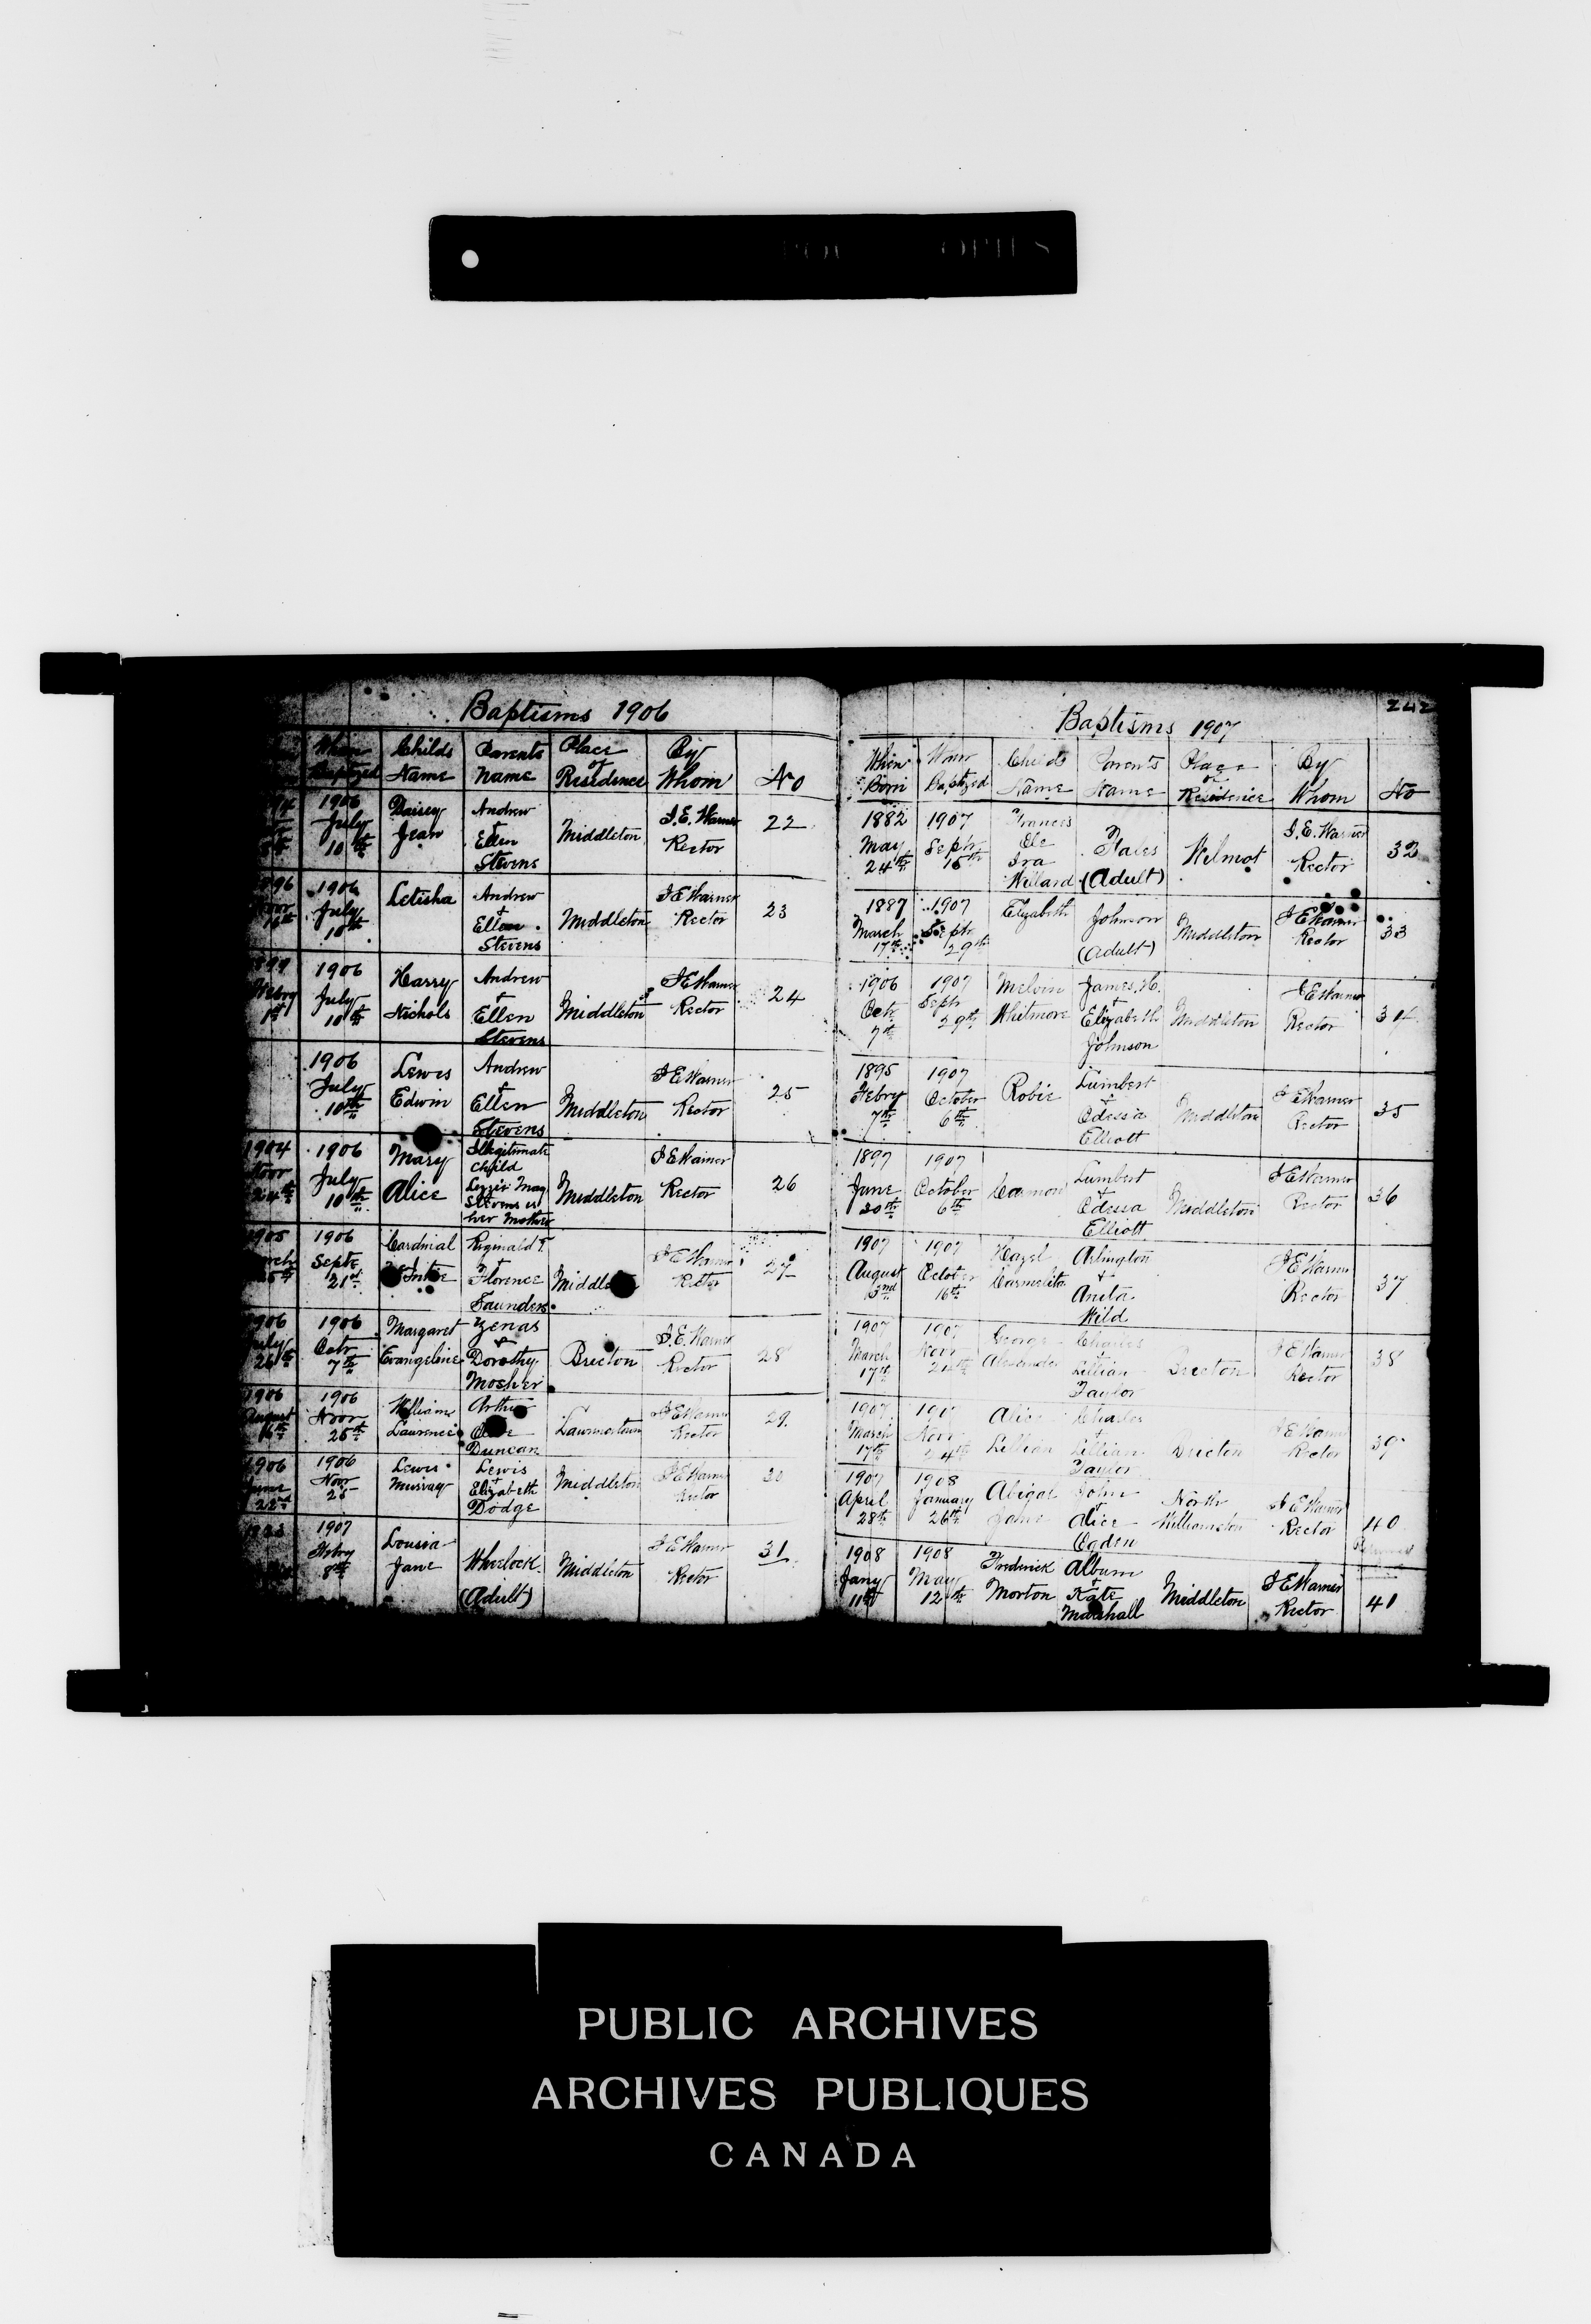 Baptisms 1906
When Baptized
Childs Name
Parents Name
Place of Residence
By Whom
No
1906 July 10th
Daisey Jean
Andrew + Ellen Stevens
Middleton
J.E. Warner Rector
22
1906 July 10th
Letisha
Andrew + Ellen Stevens
Middleton
J E Warner Rector
23
Febry 1st
1906 July 10th
Harry Nichols
Andrew + Ellen Stevens
Middleton
J E Warner Rector
24
1906 July 10th
Lewis Edwin
Andrew + Ellen Stevens
Middleton
J E Warner Rector
25
1904 Novr 24th
1906 July 10th
Mary Alice
Illegitimate child Lizzie May Stevens is her mother
Middleton
J E Warner Rector
26
1905
1906 Septr 21st
Cardinal
Reginald F. + Florence Saunders
J E Warner Rector
27
1906 July 26th
1906 Octr 7th
Margaret Evangeline
Zenas + Dorothy Mosher
Brecton
J.E. Warner Rector
28
1906 August 16th
1906 Novr 25th
William Lawrence
Arthur
Duncan
Lawrencetown
J E Warner Rector
29
1906 June 22nd
1906 Novr 25
Lewis Murray
Lewis + Elizabeth Dodge
Middleton
J E Warner Rector
30
1907 Febry 8th
Lousia Jane
Wheelock (Adult)
Middleton
J E Warner Rector
31
242
Baptisms 1907
When Born
When Baptized
Childs Name
Parents Name
Place of Residence
By Whom
No
1882 May 24th
1907 Septr 15th
Frances Ole Ira Willard
Fales (Adult)
Wilmot
J.E. Warner Rector
32
1887 March 17th
1907 Septr 29th
Elizabeth
Johnson (Adult)
Middleton
J E Warner Rector
33
1906 Octr 7th
1907 Septr 29th
Melvin Whitmore
James H. + Elizabeth Johnson
Middleton
J E Warner Rector
34
1895 Febry 7th
1907 October 6th
Robie
Lumbert + Odessa Elliott
Middleton
J E Warner Rector
35
1897 June 20th
1907 October 6th
Carmon
Lumbert + Odessa Elliott
Middleton
J E Warner Rector
36
1907 August
1907 October 16th
Hazel Carmelita
Arlington + Anita Wild
J E Warner Rector
37
1907 March 17th
1907 Novr 24th
George Alexander
Charles + Lillian Taylor
Brecton
J E Warner Rector
38
1907 March 17th
1907 Novr 24th
Alice Lillian
Charles + Lillian Taylor
Brecton
J E Warner Rector
39
1907 April 28th
1908 January 26th
Abigal Jane
John + Alice Ogden
North Williamston
J E Warner Rector
40
1908 Jany 11th
1908 May 12th
Frederick Morton
Album + Kate Marshall
Middleton
J E Warner Rector
41
PUBLIC ARCHIVES
ARCHIVES PUBLIQUES
CANADA